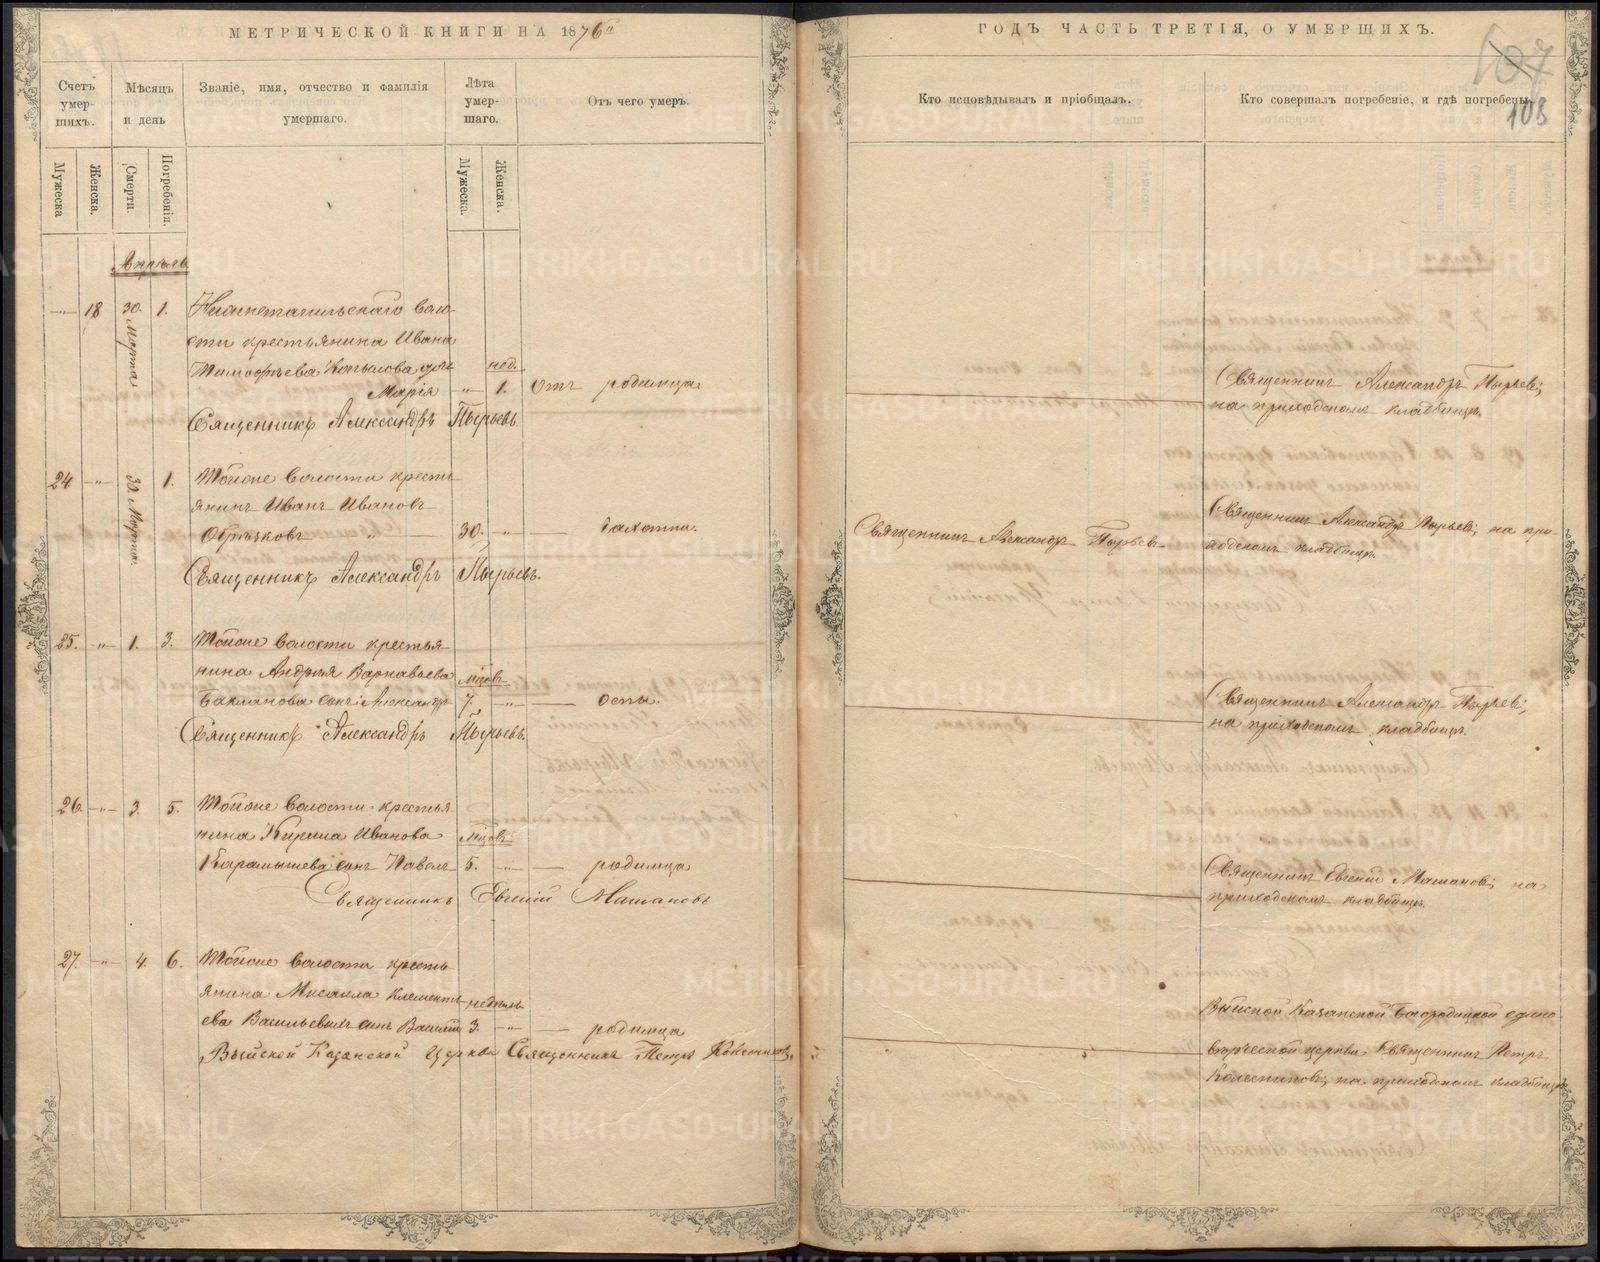 МЕТРИЧЕСКОЙ КНИГИ НА 1876й
ГОДЪ ЧАСТЬ ТРЕТІЯ, О УМЕРШИХЪ.
107
108
Счетъ умер-шихъ.
Мѣсяцъ и день
Званіе, имя, отчество и фамилія
умершаго.
Лѣта умер-шаго.
Отъ чего умеръ.
Кто исповѣдывалъ и пріобщалъ.
Кто совершалъ погребеніе, и гдѣ погребены.
Мужеска
Женска.
Смерти.
Погребенія.
Мужеска.
Женска.
Апрѣль
18 30. Марта 1.
Нижнетагильской воло-
сти крестьянина Ивана
Тимофѣева дочь
нед.
Марія 1. отъ родимца
Священникъ Александръ Пырьевъ.
Священникъ Александръ Пырьевъ;
на приходскомъ кладбищѣ.
24 30. Марта. 1.
Тойже волости кресть-
янинъ Иванъ Ивановъ
Обрѣзковъ 30. чахотки.
Священникъ Александръ Пырьевъ.
Священникъ Александръ Пырьевъ
Священникъ Александръ Пырьевъ; на при-
ходскомъ кладбищѣ.
25. 1. 3.
Тойже волости крестья-
нина Андрея Варнавьева
мѣсов.
Бакланова сынъ Александръ 7. оспы.
Священникъ Александръ Пырьевъ.
Священникъ Александръ Пырьевъ;
на приходскомъ кладбищѣ.
26. 3. 5.
Тойже волости крестья
нина Кирила Иванова
Карамышева сынъ Павелъ 5. родимца
Священникъ Евгеній
Священникъ Евгеній на
приходскомъ кладбищѣ.
27. 4. 6.
Тойже волости кресть-
янина Мисаила Клементь-
недѣль
ева Васильевыхъ сынъ Василій 3. родимца
Выйской Казанской церкви Священникъ Петръ Колесниковъ.
Выйской Казанской Богородицкой едино-
вѣрческой церкви Священникъ Петръ
Колесниковъ; на приходскомъ кладбищѣ.
METRIKI.GASO-URAL.RU